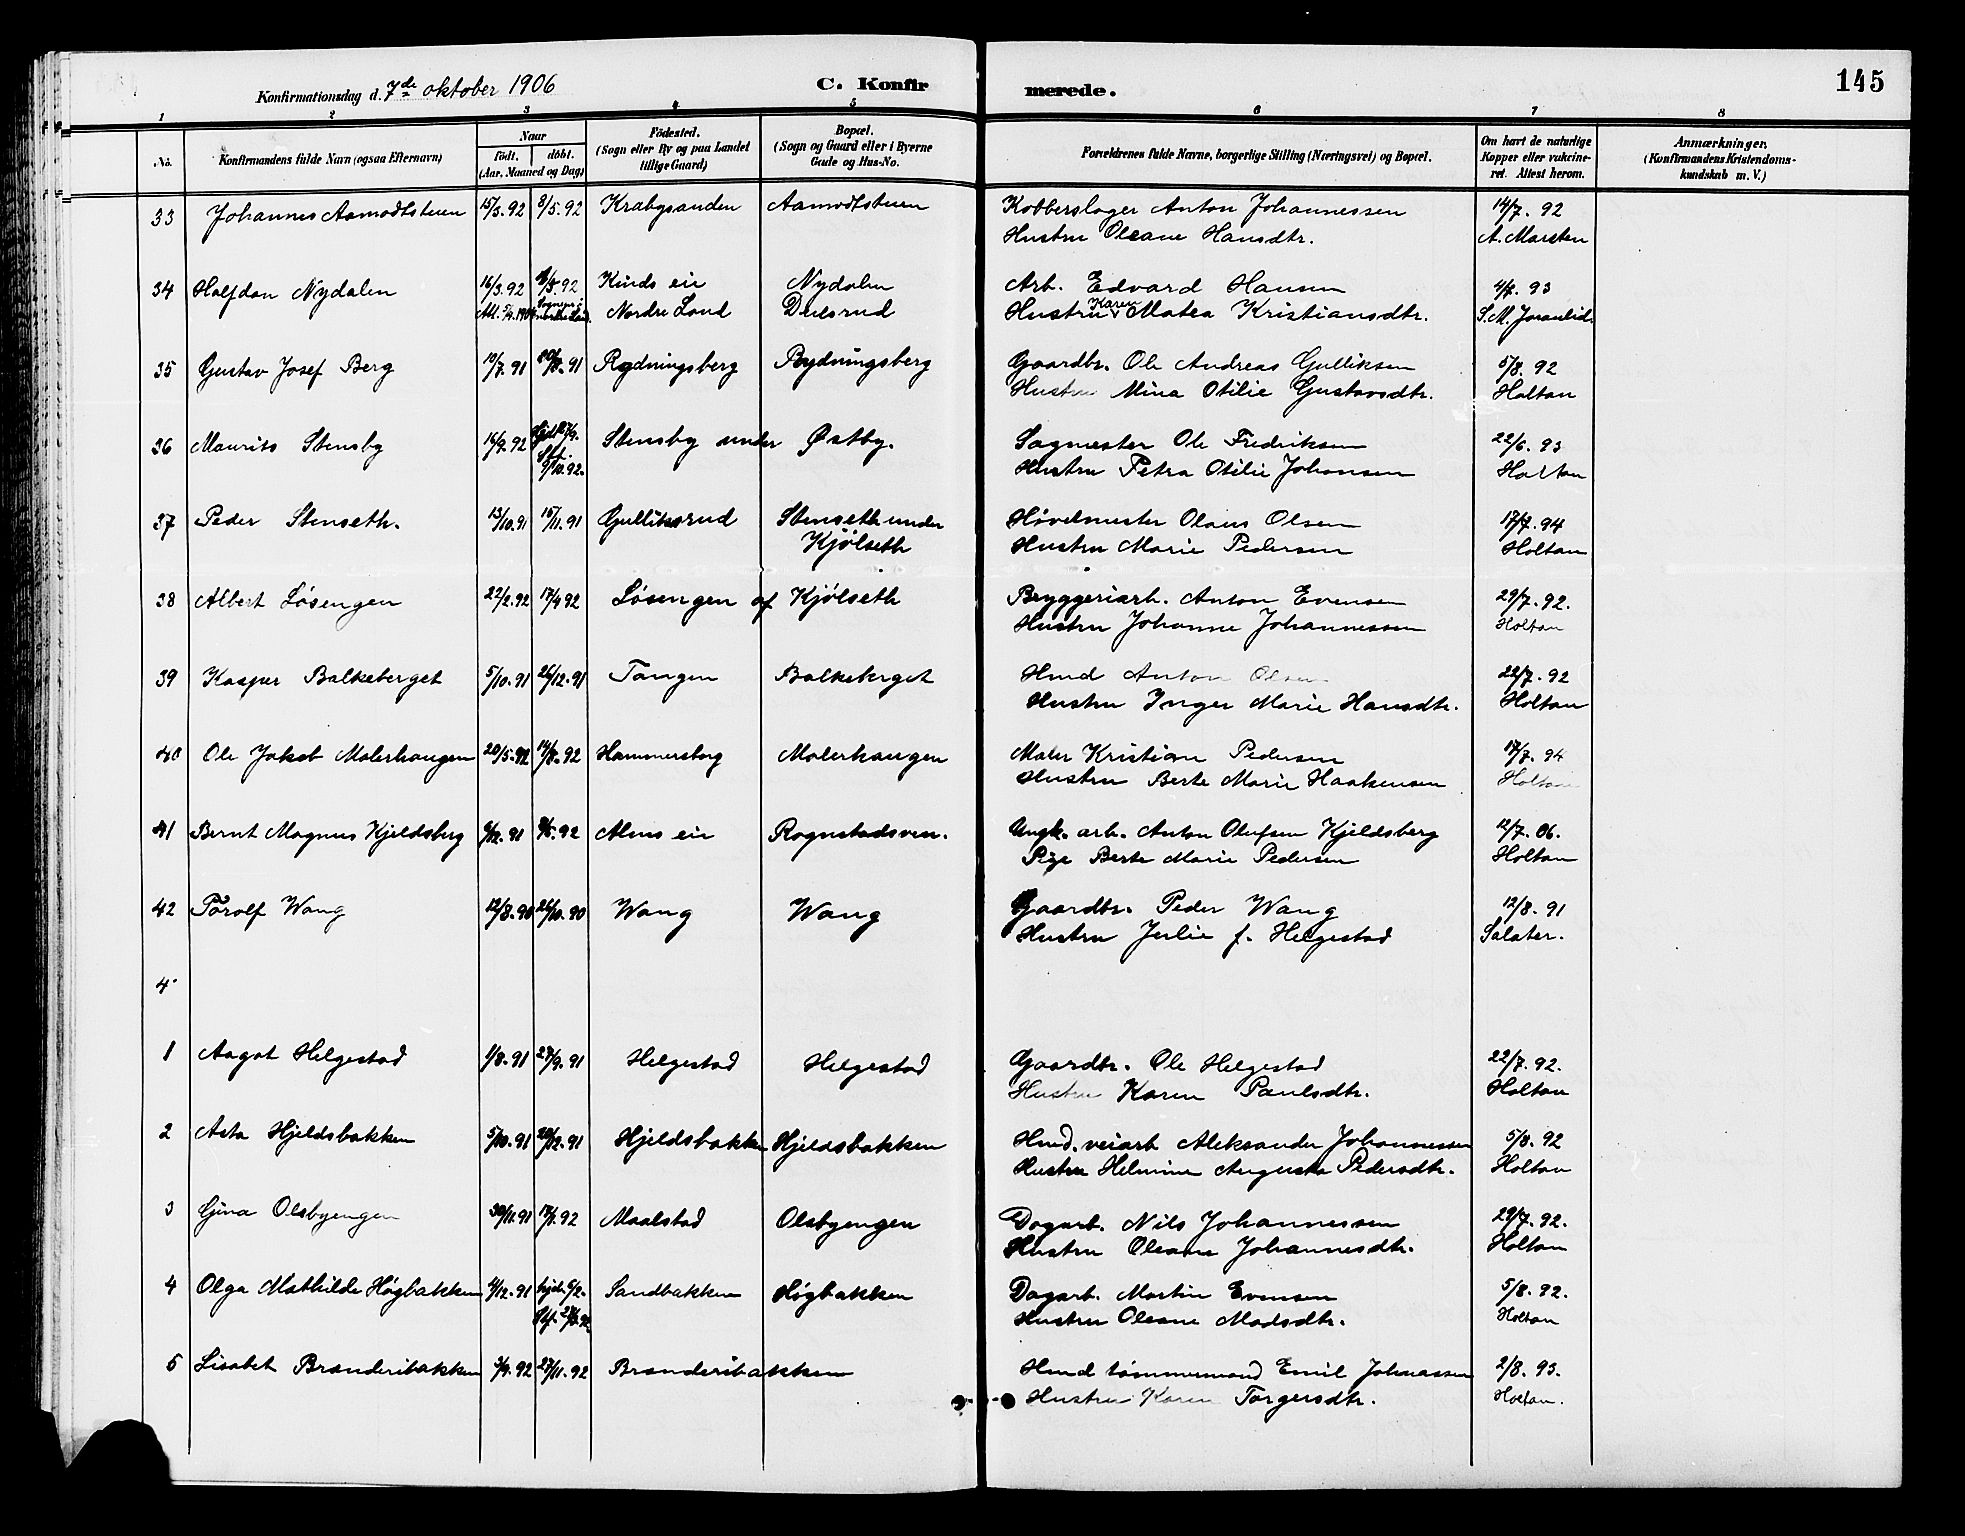 Konfirmationsdag d. 7de oktober 1906 C. Konfirmerede. 145
1 2 3 4 5 6 7 8
No. Konfirmandens fulde Navn (ogsaa Efternavn) Naar født. døbt. (Aar, Maaned og Dag) Fødested. (Sogn eller By og paa Landet tillige Gaard) Bopæl. (Sogn og Gaard eller i Byerne Gade og Hus-No. Forældrenes fulde Navne, borgerlige Stilling (Næringsvei) og Bopæl. Om havt de naturlige Kopper eller vakcineret. Attest herom. Anmærkninger. (Konfirmandens Kristendomskundskab m. V.)
33 Johannes Aamodtstuen 15/3.92 8/5.92 Krabysanden Aamodtstuen Kobberslager Anton Johannessen 14/7.92
Hustru Oleane Hansdtr. A. Marsten
34 Halfdan Nydalen 16/3.92 Kinds eie Nydalen Arb. Edvard Hansen 4/7.93
Nordre Land Duesrud Hustru Karen Matea Kristiansdtr. S.M.
35 Gustav Josef Berg 10/7.91 Rydningsberg Rydningsberg Gaardbr. Ole Andreas Gulliksen 5/8.92
Hustru Mina Otilie Gustavsdtr. Holtan
36 Maurits Stensby 16/9.92 Stensby under Østby. Sagmester Ole Fredriksen 22/6.93
9/10.92. Hustru Petra Otilie Johansen Holtan
37 Peder Stenseth. 13/10.91 15/11.91 Gulliksrud Stenseth under Høvelmester Olaus Olsen 17/7.94
Kjølseth Hustru Marie Pedersen Holtan
38 Albert Løsengen 22/2.92 17/4 92 Løsengen af Kjølseth Bryggeriarb. Anton Evensen 29/7.92.
Hustru Johanne Johannessen Holtan
39 Kasper Balkeberget 5/10.91 26/12.91 Tangen Balkeberget Hmd Anton Olsen 22/7.92
Hustru Inger Marie Hansdtr. Holtan
40 Ole Jakob Malerhaugen 20/5.92 14/8.92 Hammersborg Malerhaugen Maler Kristian Pedersen 17/7.94
Hustru Berte Marie Haakensen Holtan
41 Bernt Magnus Kjeldsberg 6/12.91 8/5.92 Alms eie Rognstadsven. Ungk. arb. Anton Olufsen Kjeldsberg 12/7.06.
Pige Berte Marie Pedersen Holtan
42 Torolf Wang 12/8.90 26/10.90 Wang Wang Gaardbr. Peder Wang 12/8.91
Hustru Julie f. Helgestad Salater.
4
1 Aagot Helgestad 1/8.91 27/9.91 Helgestad Helgestad Gaardbr. Ole Helgestad 22/7.92.
Hustru Karen Paulsdtr. Holtan
2 Asta Hjeldsbakken 5/10.91 20/12.91 Hjeldsbakken Hjeldsbakken Hmd. veiarb Aleksander Johannessen 5/8.92
Hustru Helmine Augusta Pedersdtr. Holtan
3 Gina Olsbyengen 30/11.91 17/1.92 Maalstad Olsbyengen Dagarb. Nils Johannessen 29/7.92.
Hustru Oleane Johannesdtr. Holtan
4 Olga Mathilde Høgbakken 4/12.91 hjdt. 6/2. Sandbakken Høgbakken Dagarb. Martin Evensen 5/8.92.
Hustru Oleane Madsdtr. Holtan
5 Lisabet Brænderibakken 3/9.92 27/11.92 Brænderibakken Hmd tømmermand Emil Johnassen 2/8.93.
Hustru Karen Torgersdtr. Holtan.